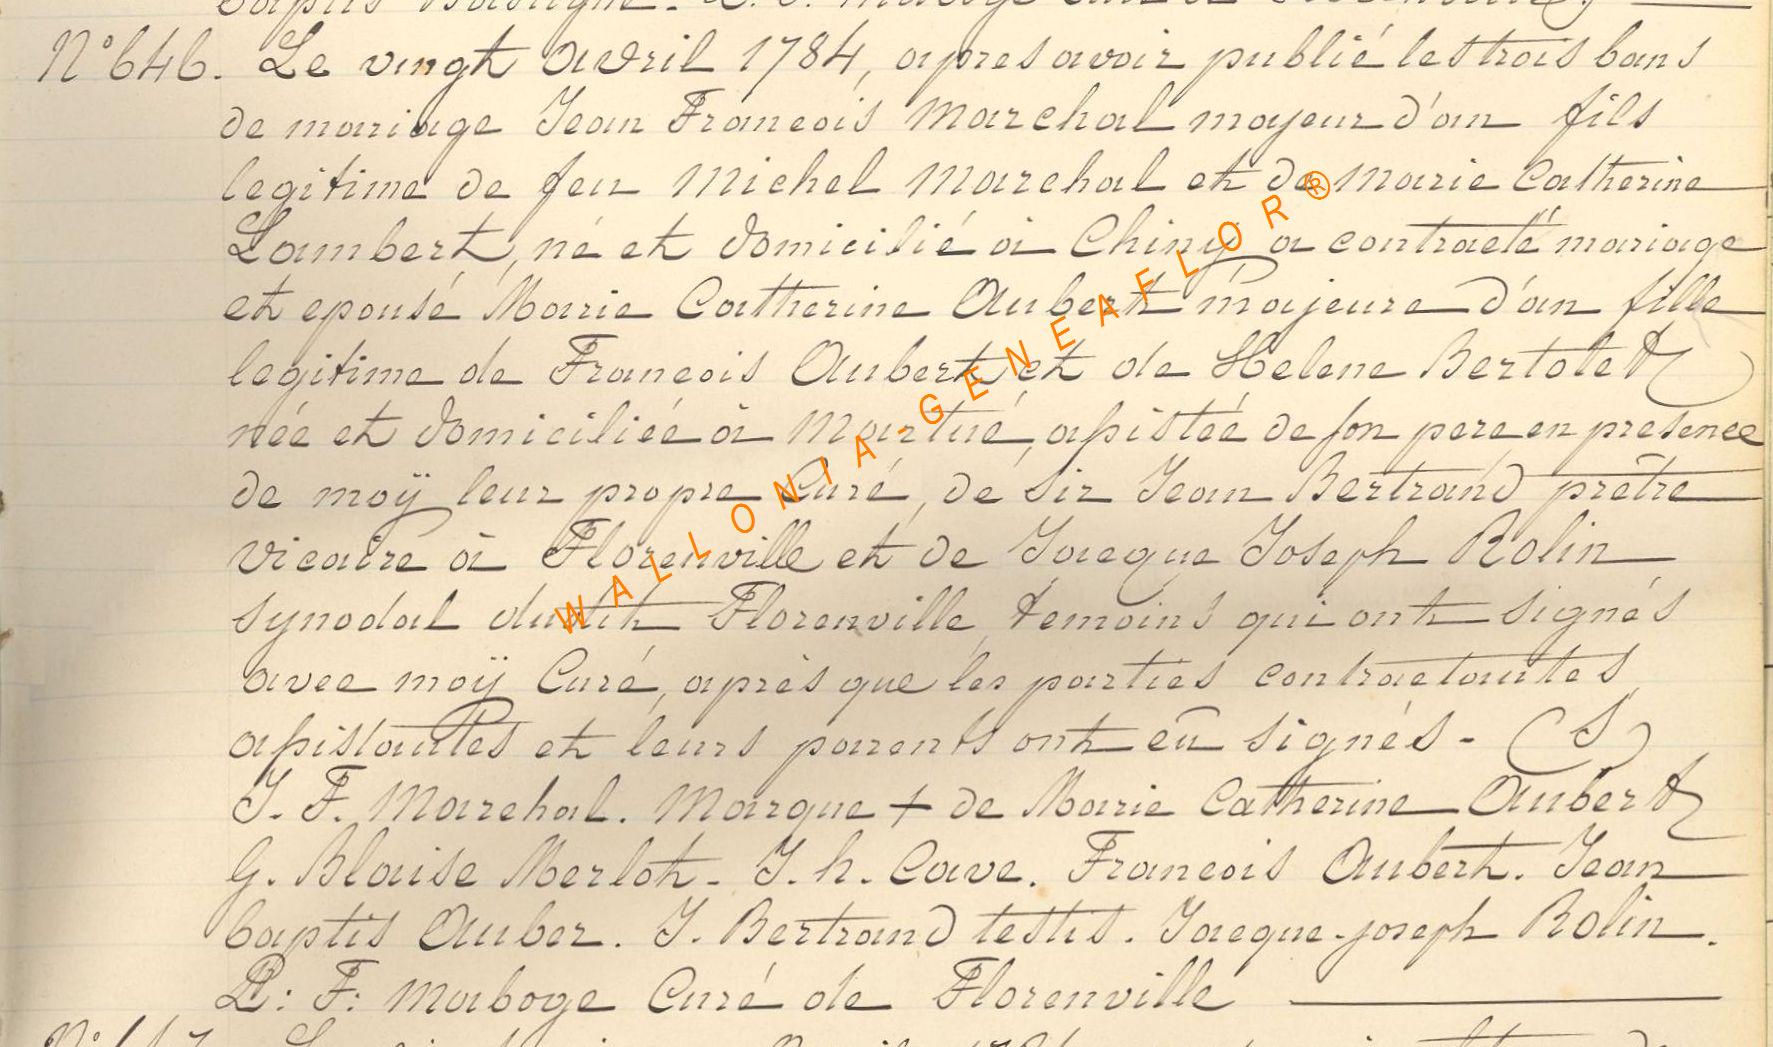 N° 646. Le vingt avril 1784, apres avoir publié les trois bans
de mariage Jean Francois Marchal mayeur d'an fils
legitime de feu Michel Marchal et de Marie Catherine
Lambert, né et domicilié à Chiny a contracté mariage
et epousé Marie Catherine Aubert majeure d'an fille
legitime de Francois Aubert et de Helene Bertolet
née et domiciliée à Martué, assistée de son pere en presence
de moÿ leur propre Curé, de Sir Jean Bertrand prêtre
vicaire à Florenville et de Jacque Joseph Rolin
synodal dudit Florenville, temoins qui ont signés
avec moÿ Curé, après que les parties contractantes
assistantes et leurs parents ont eu signés - (S)
J. F. Marchal. Marque + de Marie Catherine Aubert
G. Blaise Merlot. J. h. Cave. Francois Aubert. Jean
baptis Auber. J. Bertrand testis. Jacque-joseph Rolin.
P: F: Maboge Curé de Florenville
WALLONIA-GENEAFLOR®